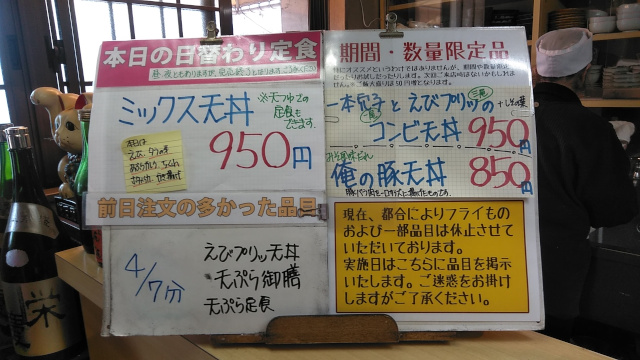 本日の日替わり定食
ミックス天丼
※天つゆの
定食も
できます。
950円
本日は
えび
ちくわ
かき揚げ
前日注文の多かった品目
4/7分
えびプリッ天丼
天ぷら御膳
天ぷら定食
期間・数量限定品
一本穴子とえびプリッの
コンビ天丼 950円
みそ風味だれ
俺の豚天丼 850円
現在、都合によりフライもの
および一部品目は休止させて
いただいております。
実施日はこちらに品目を掲示
いたします。ご迷惑をお掛け
しますがご了承ください。
栄